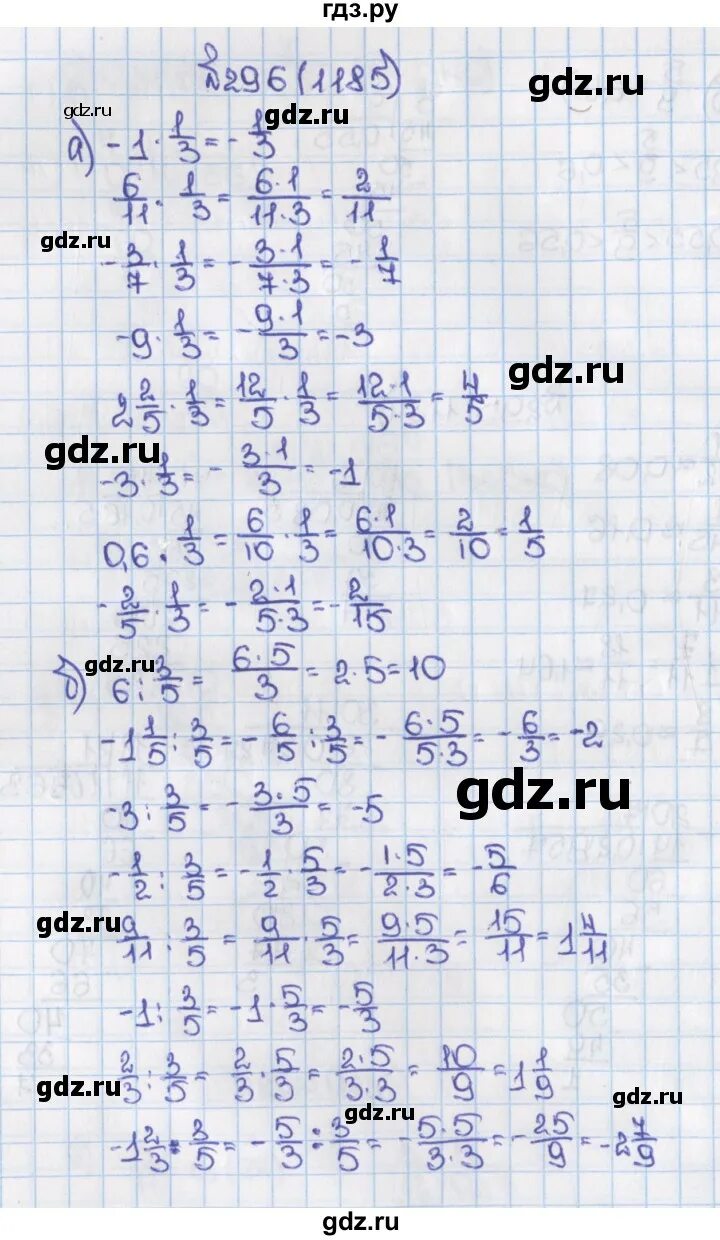 гдз.ру
№296(1185)
gdz.ru
gdz.ru
а) -1 · 1/3 = -1/3
6/11 · 1/3 = 6·1/11·3 = 2/11
gdz.ru
-3/7 · 1/3 = -3·1/7·3 = -1/7
-9 · 1/3 = -9·1/3 = -3
gdz.ru
2 2/5 · 1/3 = 12/5 · 1/3 = 12·1/5·3 = 4/5
gdz.ru
-3 · 1/3 = -3·1/3 = -1
0,6 · 1/3 = 6/10 · 1/3 = 6·1/10·3 = 2/10 = 1/5
-2/5 · 1/3 = -2·1/5·3 = -2/15
gdz.ru
б) 6 : 3/5 = 6·5/3 = 2·5 = 10
-1 1/5 : 3/5 = -6/5 : 3/5 = -6·5/5·3 = -6/3 = -2
gdz.ru
-3 : 3/5 = -3·5/3 = -5
-1/2 : 3/5 = -1/2 · 5/3 = -1·5/2·3 = -5/6
gdz.ru
9/11 : 3/5 = 9/11 · 5/3 = 9·5/11·3 = 15/11 = 1 4/11
-1 : 3/5 = -1 · 5/3 = -5/3
gdz.ru
2/3 : 3/5 = 2/3 · 5/3 = 2·5/3·3 = 10/9 = 1 1/9
gdz.ru
gdz.ru
-1 2/3 : 3/5 = -5/3 : 3/5 = -5·5/3·3 = -25/9 = -2 7/9
gdz.ru